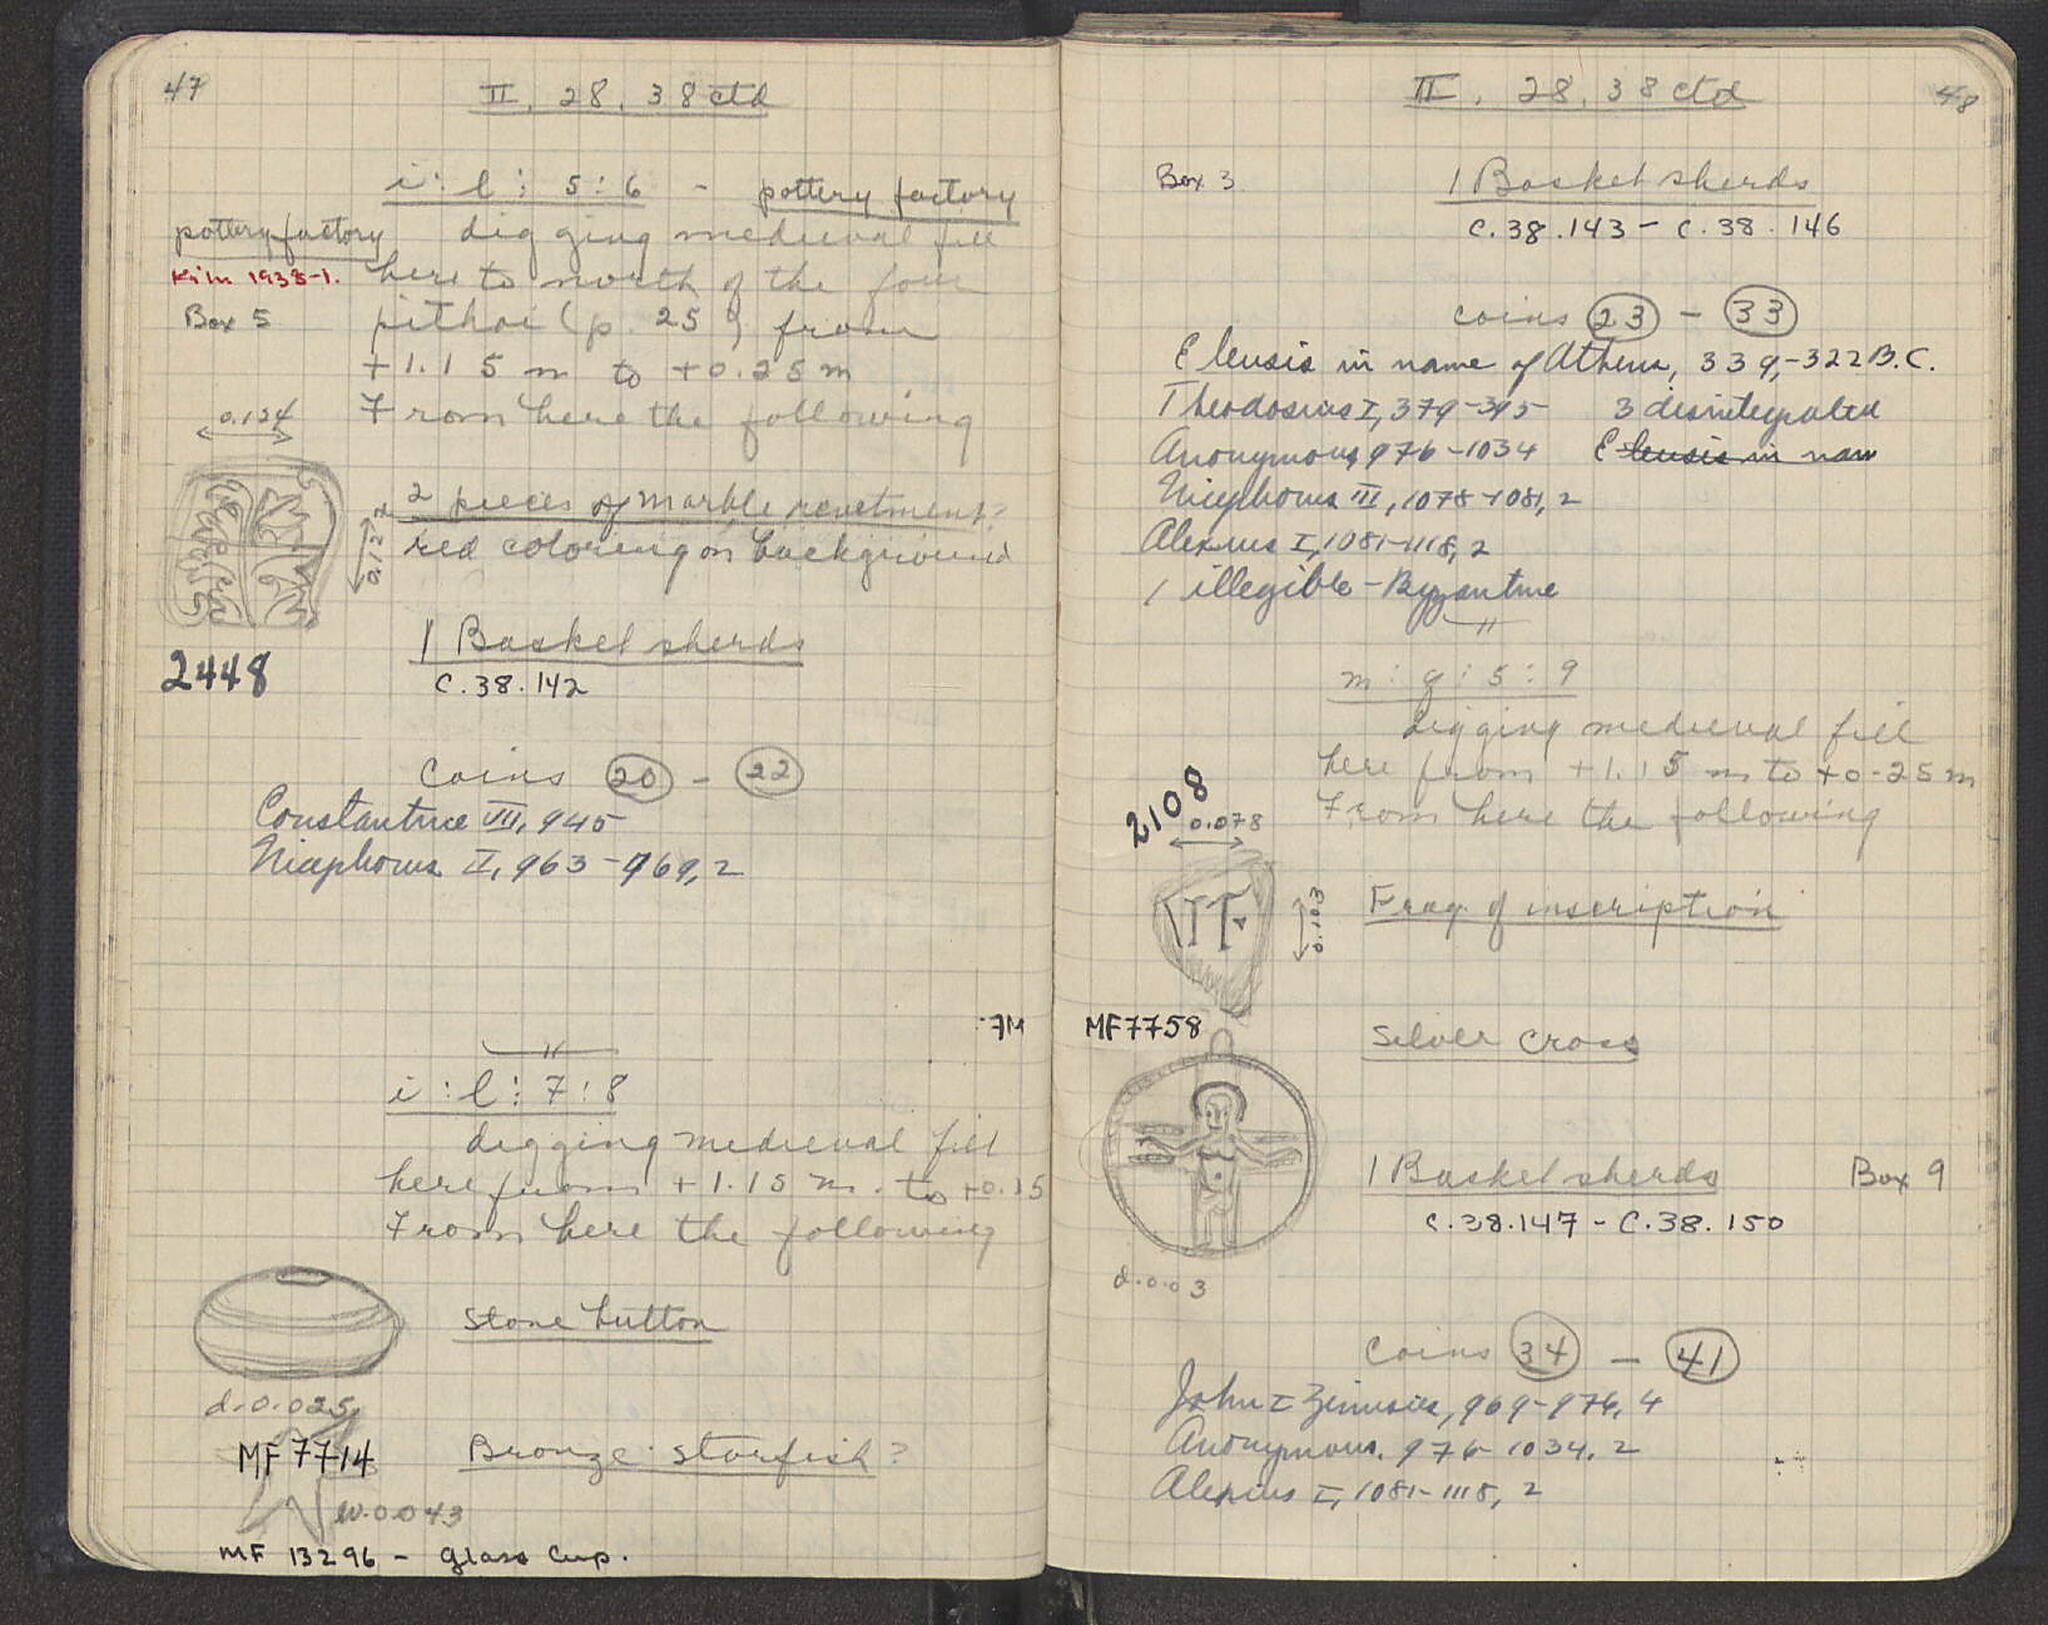 47
II, 28, 38 ctd
i : l : 5 : 6 - pottery factory
pottery factory
digging medieval fill
Kiln 1938-1.
here to north of the four
Box 5
pithoi (p. 25) from
+1.15 m to +0.25 m
0.124
From here the following
2 pieces of marble revetment:
0.122
red coloring on background
1 Basket sherds
2448
C.38.142
Coins 20 - 22
Constantine VII, 945
Nicephorus II, 963-969, 2
7M
i : l : 7 : 8
digging medieval fill
here from +1.15 m. to +0.15
From here the following
Stone button
d. 0.025
MF 7714
Bronze starfish?
w. 0.043
MF 13296 - Glass Cup.
II, 28, 38 ctd
48
Box 3
1 Basket sherds
C.38.143 - C.38.146
coins 23 - 33
Eleusis in name of Athens, 339-322 B.C.
Theodosius I, 379-395 3 disintegrated
Anonymous, 976-1034 Eleusis in nam
Nicephorus III, 1078-1081, 2
Alexius I, 1081-1118, 2
1 illegible - Byzantine
m : q : 5 : 9
digging medieval fill
here from +1.15 m to +0.25 m
2108
From here the following
0.078
Frag. of inscription
0.103
MF7758
Silver Cross
1 Basket sherds
Box 9
C.38.147 - C.38.150
d. 0.03
Coins 34 - 41
John I Zimisces, 969-976, 4
Anonymous, 976-1034, 2
Alexius I, 1081-1118, 2